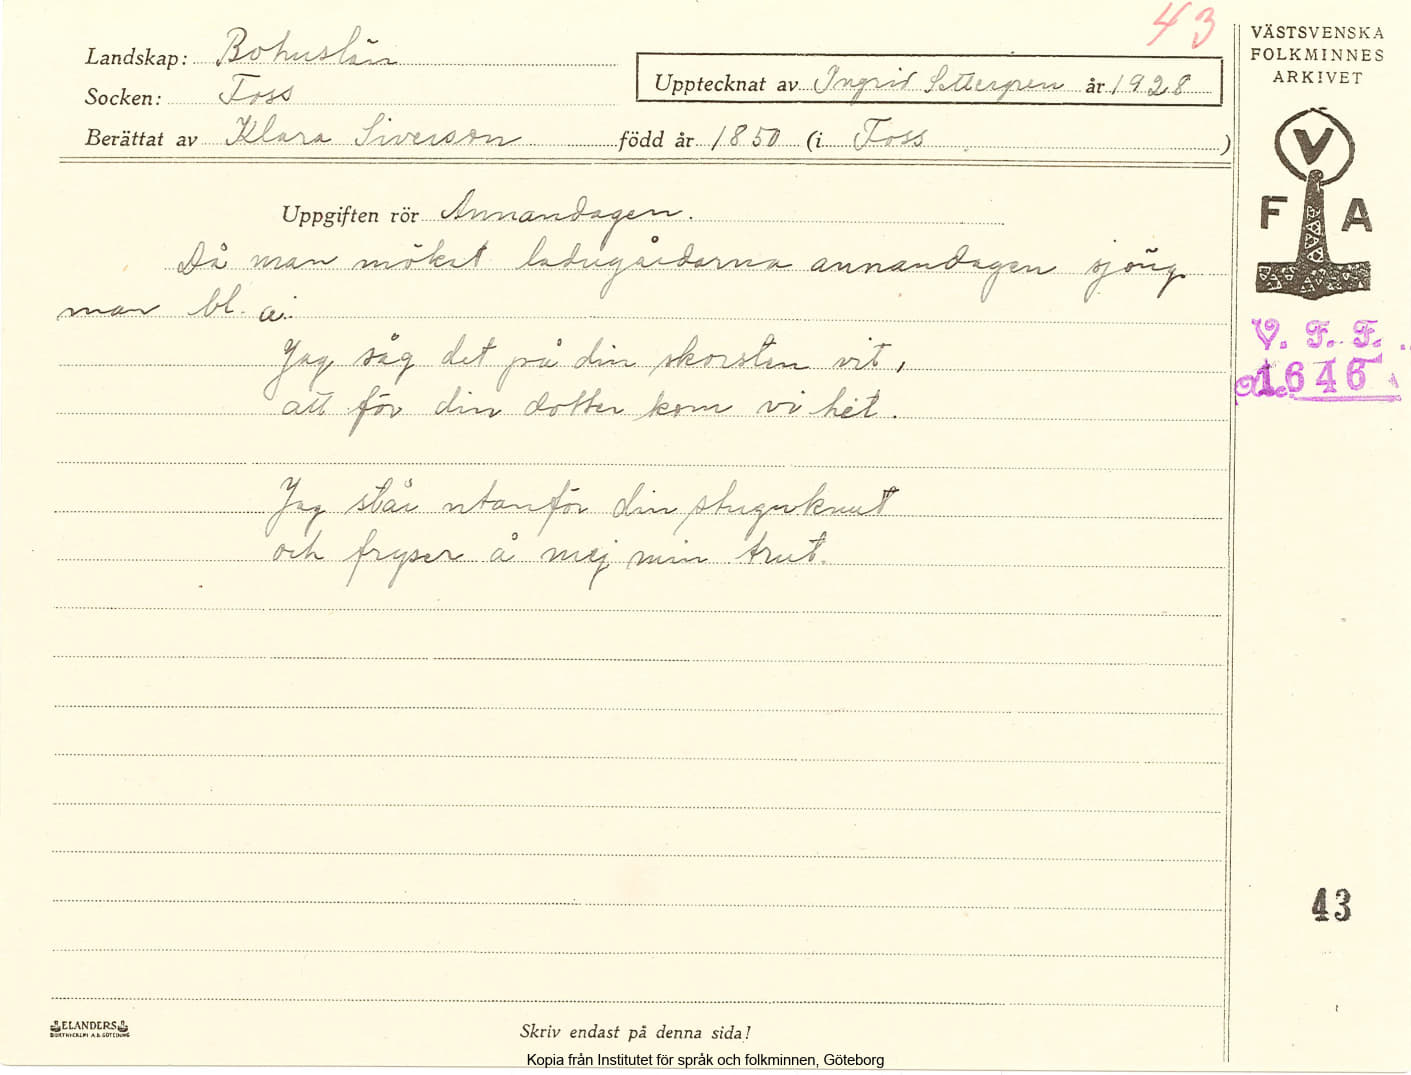 43
Landskap: Bohuslän
Socken: Foss
Upptecknat av Ingrid Settergren år 1928
Berättat av Klara Siverson född år 1850 (i Foss )
VÄSTSVENSKA
FOLKMINNES
ARKIVET
V
F A
V. F. F.
Acc. 1646
Uppgiften rör Annandagen.
Då man mökat ladugårdarna annandagen sjöng
man bl. a.:
Jag såg det på din skorsten vit,
att för din dotter kom vi hit.
Jag står utanför din stuguknut
och fryser å mej min trut.
43
ELANDERS
BOKTRYCKERI A.B. GÖTEBORG
Skriv endast på denna sida!
Kopia från Institutet för språk och folkminnen, Göteborg